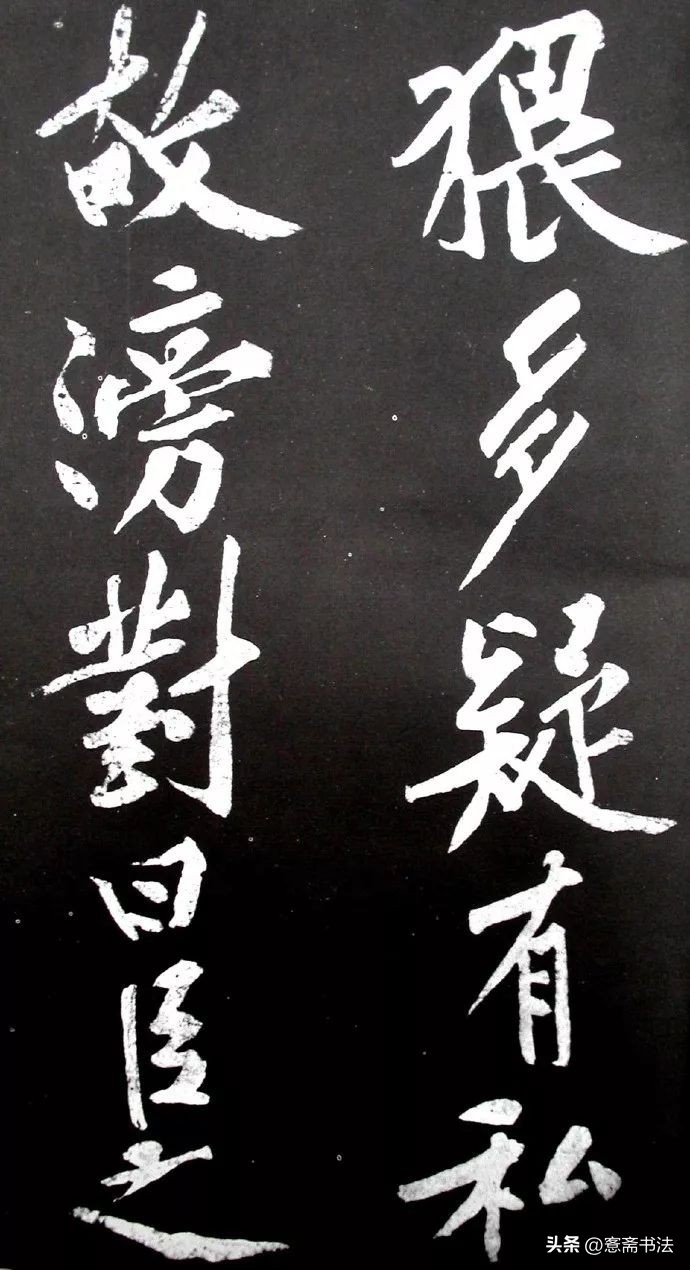 猥多疑有私
故滂對曰臣之
头条@愙斋书法